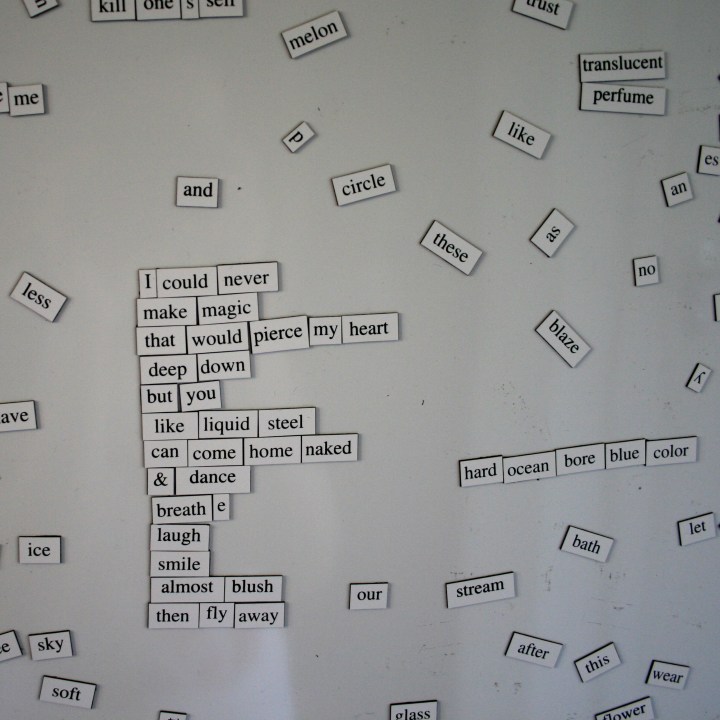 kill one s self
trust
melon
translucent
me
perfume
p
like
es
and
circle
an
these
as
no
less
I could never
make magic
that would pierce my heart
blaze
deep down
y
but you
like liquid steel
can come home naked
hard ocean bore blue color
& dance
breath e
let
laugh
bath
ice
smile
almost blush
our
stream
then fly away
sky
after
this
wear
soft
glass
flower